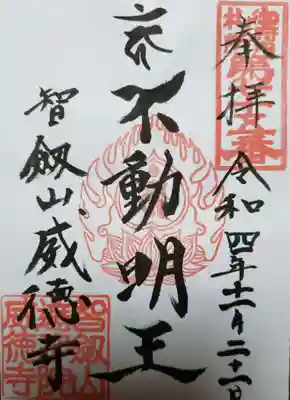 奉拝
令和四年十一月二十一日
不動明王
智剱山威徳寺
智剱山
威徳寺